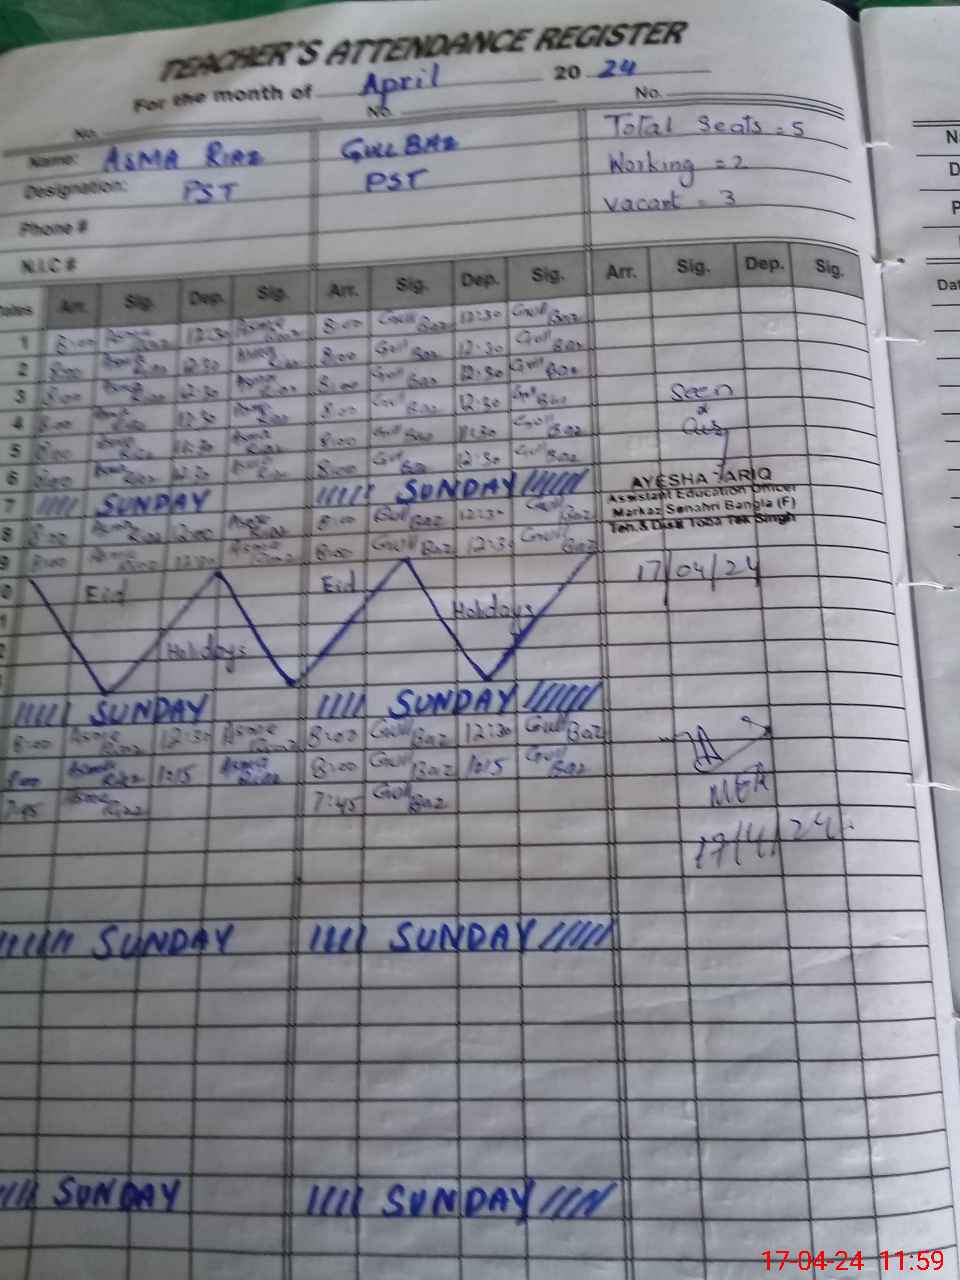 TEACHER'S ATTENDANCE REGISTER
For the month of April 20 24
No. No. No.
Name: ASMA RIAZ GULL BAZ Total Seats = 5
Designation: PST PST Working = 2
Phone # vacant = 3
N.I.C #
Dates Arr. Sig. Dep. Sig. Arr. Sig. Dep. Sig. Arr. Sig. Dep. Sig.
1 8:00 Asma Riaz 12:30 Asma Riaz 8:00 Gull Baz 12:30 Gull Baz
2 8:00 Asma Riaz 12:30 Asma Riaz 8:00 Gull Baz 12:30 Gull Baz
3 8:00 Asma Riaz 12:30 Asma Riaz 8:00 Gull Baz 12:30 Gull Baz Seen
4 8:00 Asma Riaz 12:30 Asma Riaz 8:00 Gull Baz 12:30 Gull Baz
5 8:00 Asma Riaz Asma Riaz 8:00 Gull Baz Gull Baz
6 8:00 Asma Riaz Riaz 8:00 Gull Baz 12:30 Gull Baz
7 SUNDAY SUNDAY AYESHA TARIQ
Assistant Education Officer
Markaz Sonahri Bangla (F)
Teh. & Distt Toba Tek Singh
8 8:00 Asma Riaz Asma Riaz 8:00 Gull Baz 12:30 Gull Baz
9 8:00 Asma Riaz Asma Riaz 8:00 Gull Baz 12:30 Gull Baz
17/04/24
0 Eid Eid
1 Holidays
2 Holidays
SUNDAY SUNDAY
8:00 Asma Riaz 12:30 Asma Riaz 8:00 Gull Baz 12:30 Gull Baz
8:00 Asma Riaz 1:15 Asma Riaz 8:00 Gull Baz 1:15 Gull Baz
7:45 Asma Riaz 7:45 Gull Baz
17/4/24
SUNDAY SUNDAY
SUNDAY SUNDAY
N
D
P
Dat
17-04-24 11:59